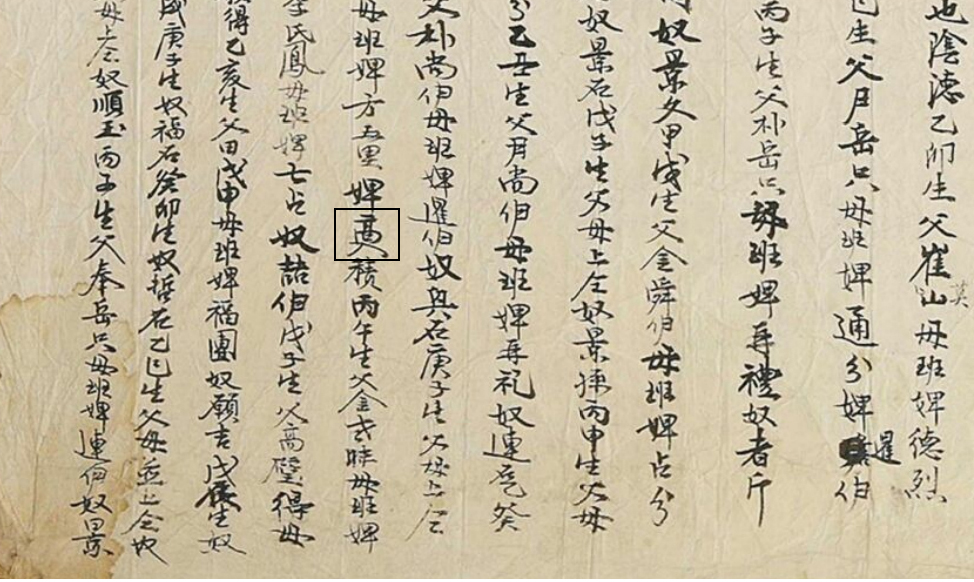 也陰德乙卯生父崔山母班婢德烈
英
巳生父月岳只母班婢通分婢暹伯
丙子生父朴岳只母班婢再禮奴者斤
奴景久甲戌生父金舜伯母班婢占分
奴景石戊子生父母上仝奴景孫丙申生父母
分乙丑生父月尚伯母班婢再礼奴連乞癸
父朴尚伯母班婢暹伯奴與石庚子生父母上仝
母班婢方五里婢積丙午生父金式昧母班婢
李氏鳳母班婢七占奴喆伯戊子生父高壁得母
得乙亥生父田戊甲母班婢福團奴願吉戊辰生奴
庚子生奴福石癸卯生奴哲石乙巳生父母並上仝奴
母上仝奴順玉丙子生父奉岳只母班婢連伯奴景